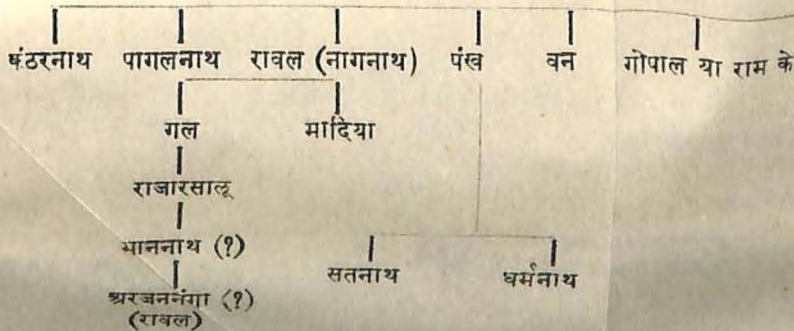 कंठरनाथ पागलनाथ रावल (नागनाथ) पंख वन गोपाल या राम के
गल मादिया
राजारसालू
माननाथ (?)
सतनाथ धर्मनाथ
अरजननंगा (?)
(रावल)